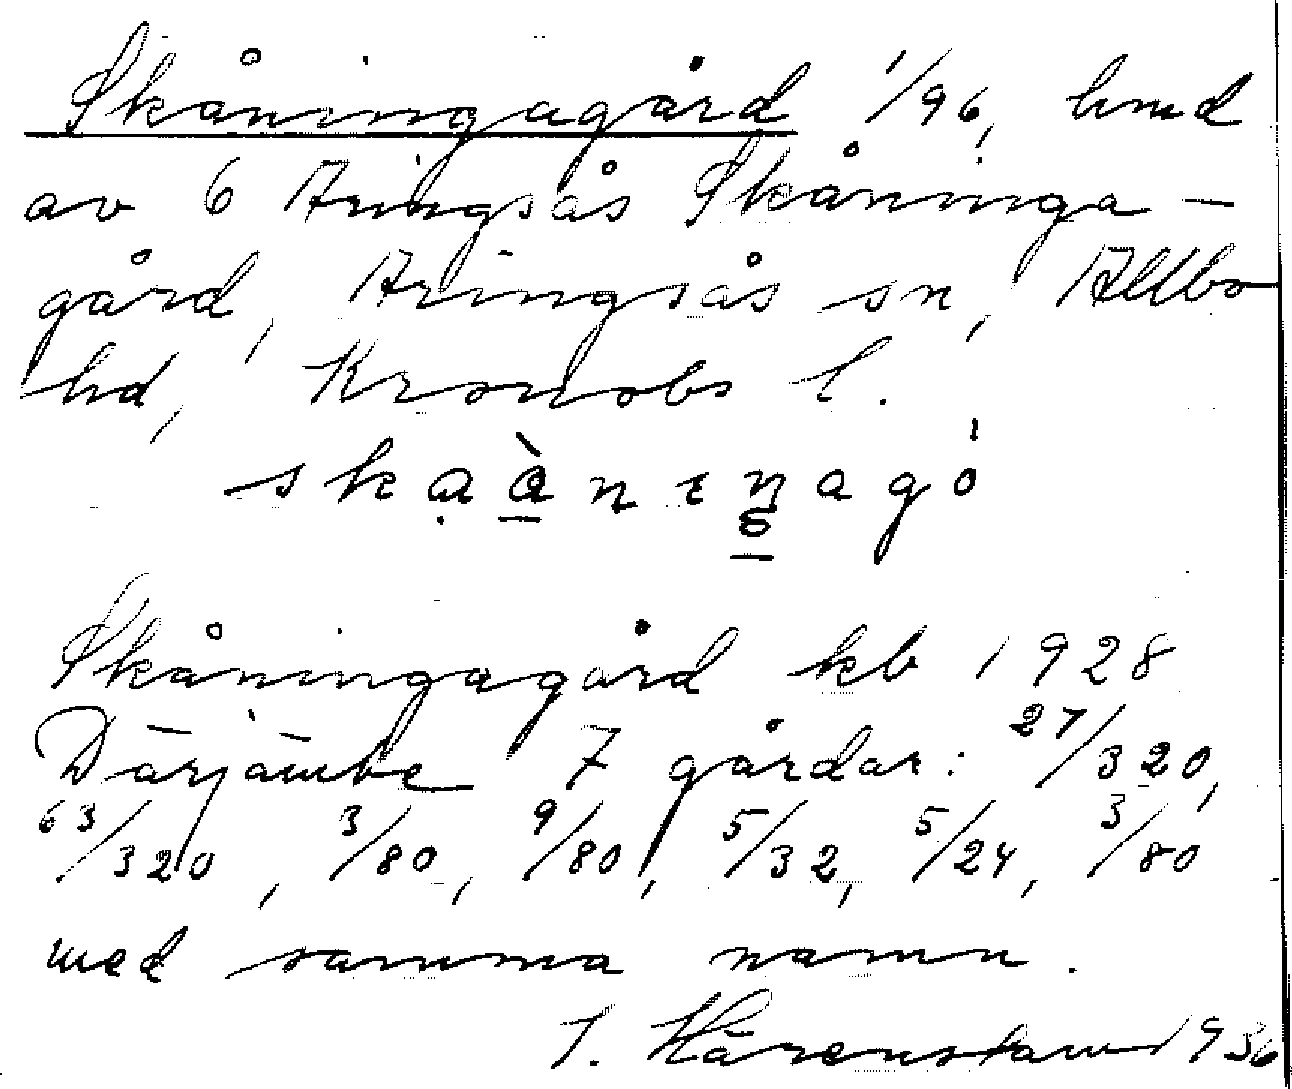 Skåningagård 1/96, hmd
av 6 Aringsås Skåninga-
gård, Aringsås sn, Allbo
hd, Kronobs l.
Skåningagård kb 1928
Därjämte 7 gårdar: 27/320,
63/320, 3/80, 9/80, 5/32, 5/24, 3/80
med samma namn.
I. Härenstam 1936